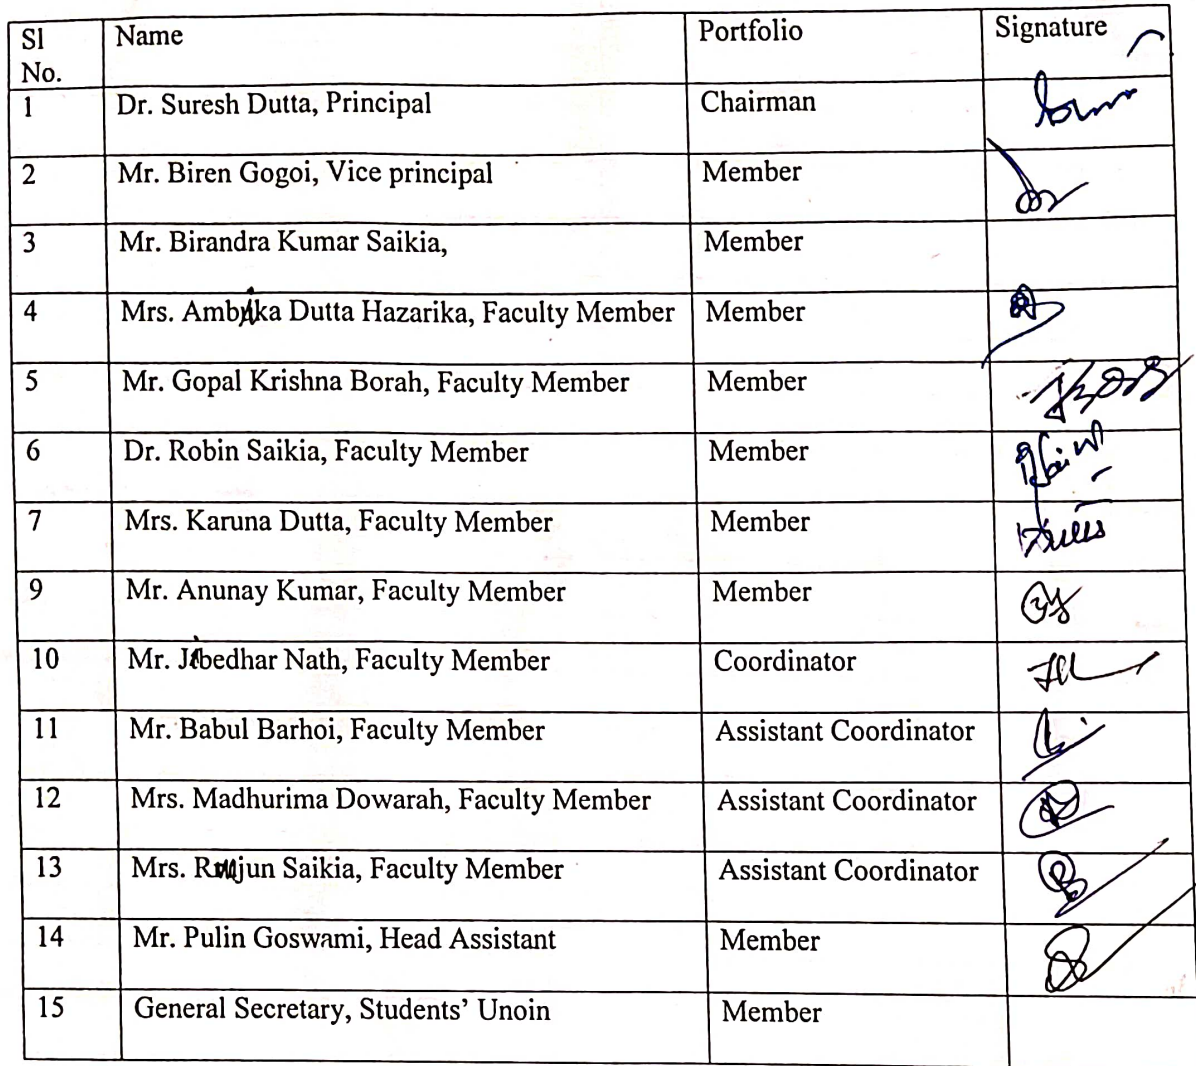 Sl No. Name Portfolio Signature
1 Dr. Suresh Dutta, Principal Chairman
2 Mr. Biren Gogoi, Vice principal Member
3 Mr. Birandra Kumar Saikia, Member
4 Mrs. Ambika Dutta Hazarika, Faculty Member Member
5 Mr. Gopal Krishna Borah, Faculty Member Member
6 Dr. Robin Saikia, Faculty Member Member
7 Mrs. Karuna Dutta, Faculty Member Member
9 Mr. Anunay Kumar, Faculty Member Member
10 Mr. Jibedhar Nath, Faculty Member Coordinator
11 Mr. Babul Barhoi, Faculty Member Assistant Coordinator
12 Mrs. Madhurima Dowarah, Faculty Member Assistant Coordinator
13 Mrs. Saikia, Faculty Member Assistant Coordinator
14 Mr. Pulin Goswami, Head Assistant Member
15 General Secretary, Students’ Unoin Member